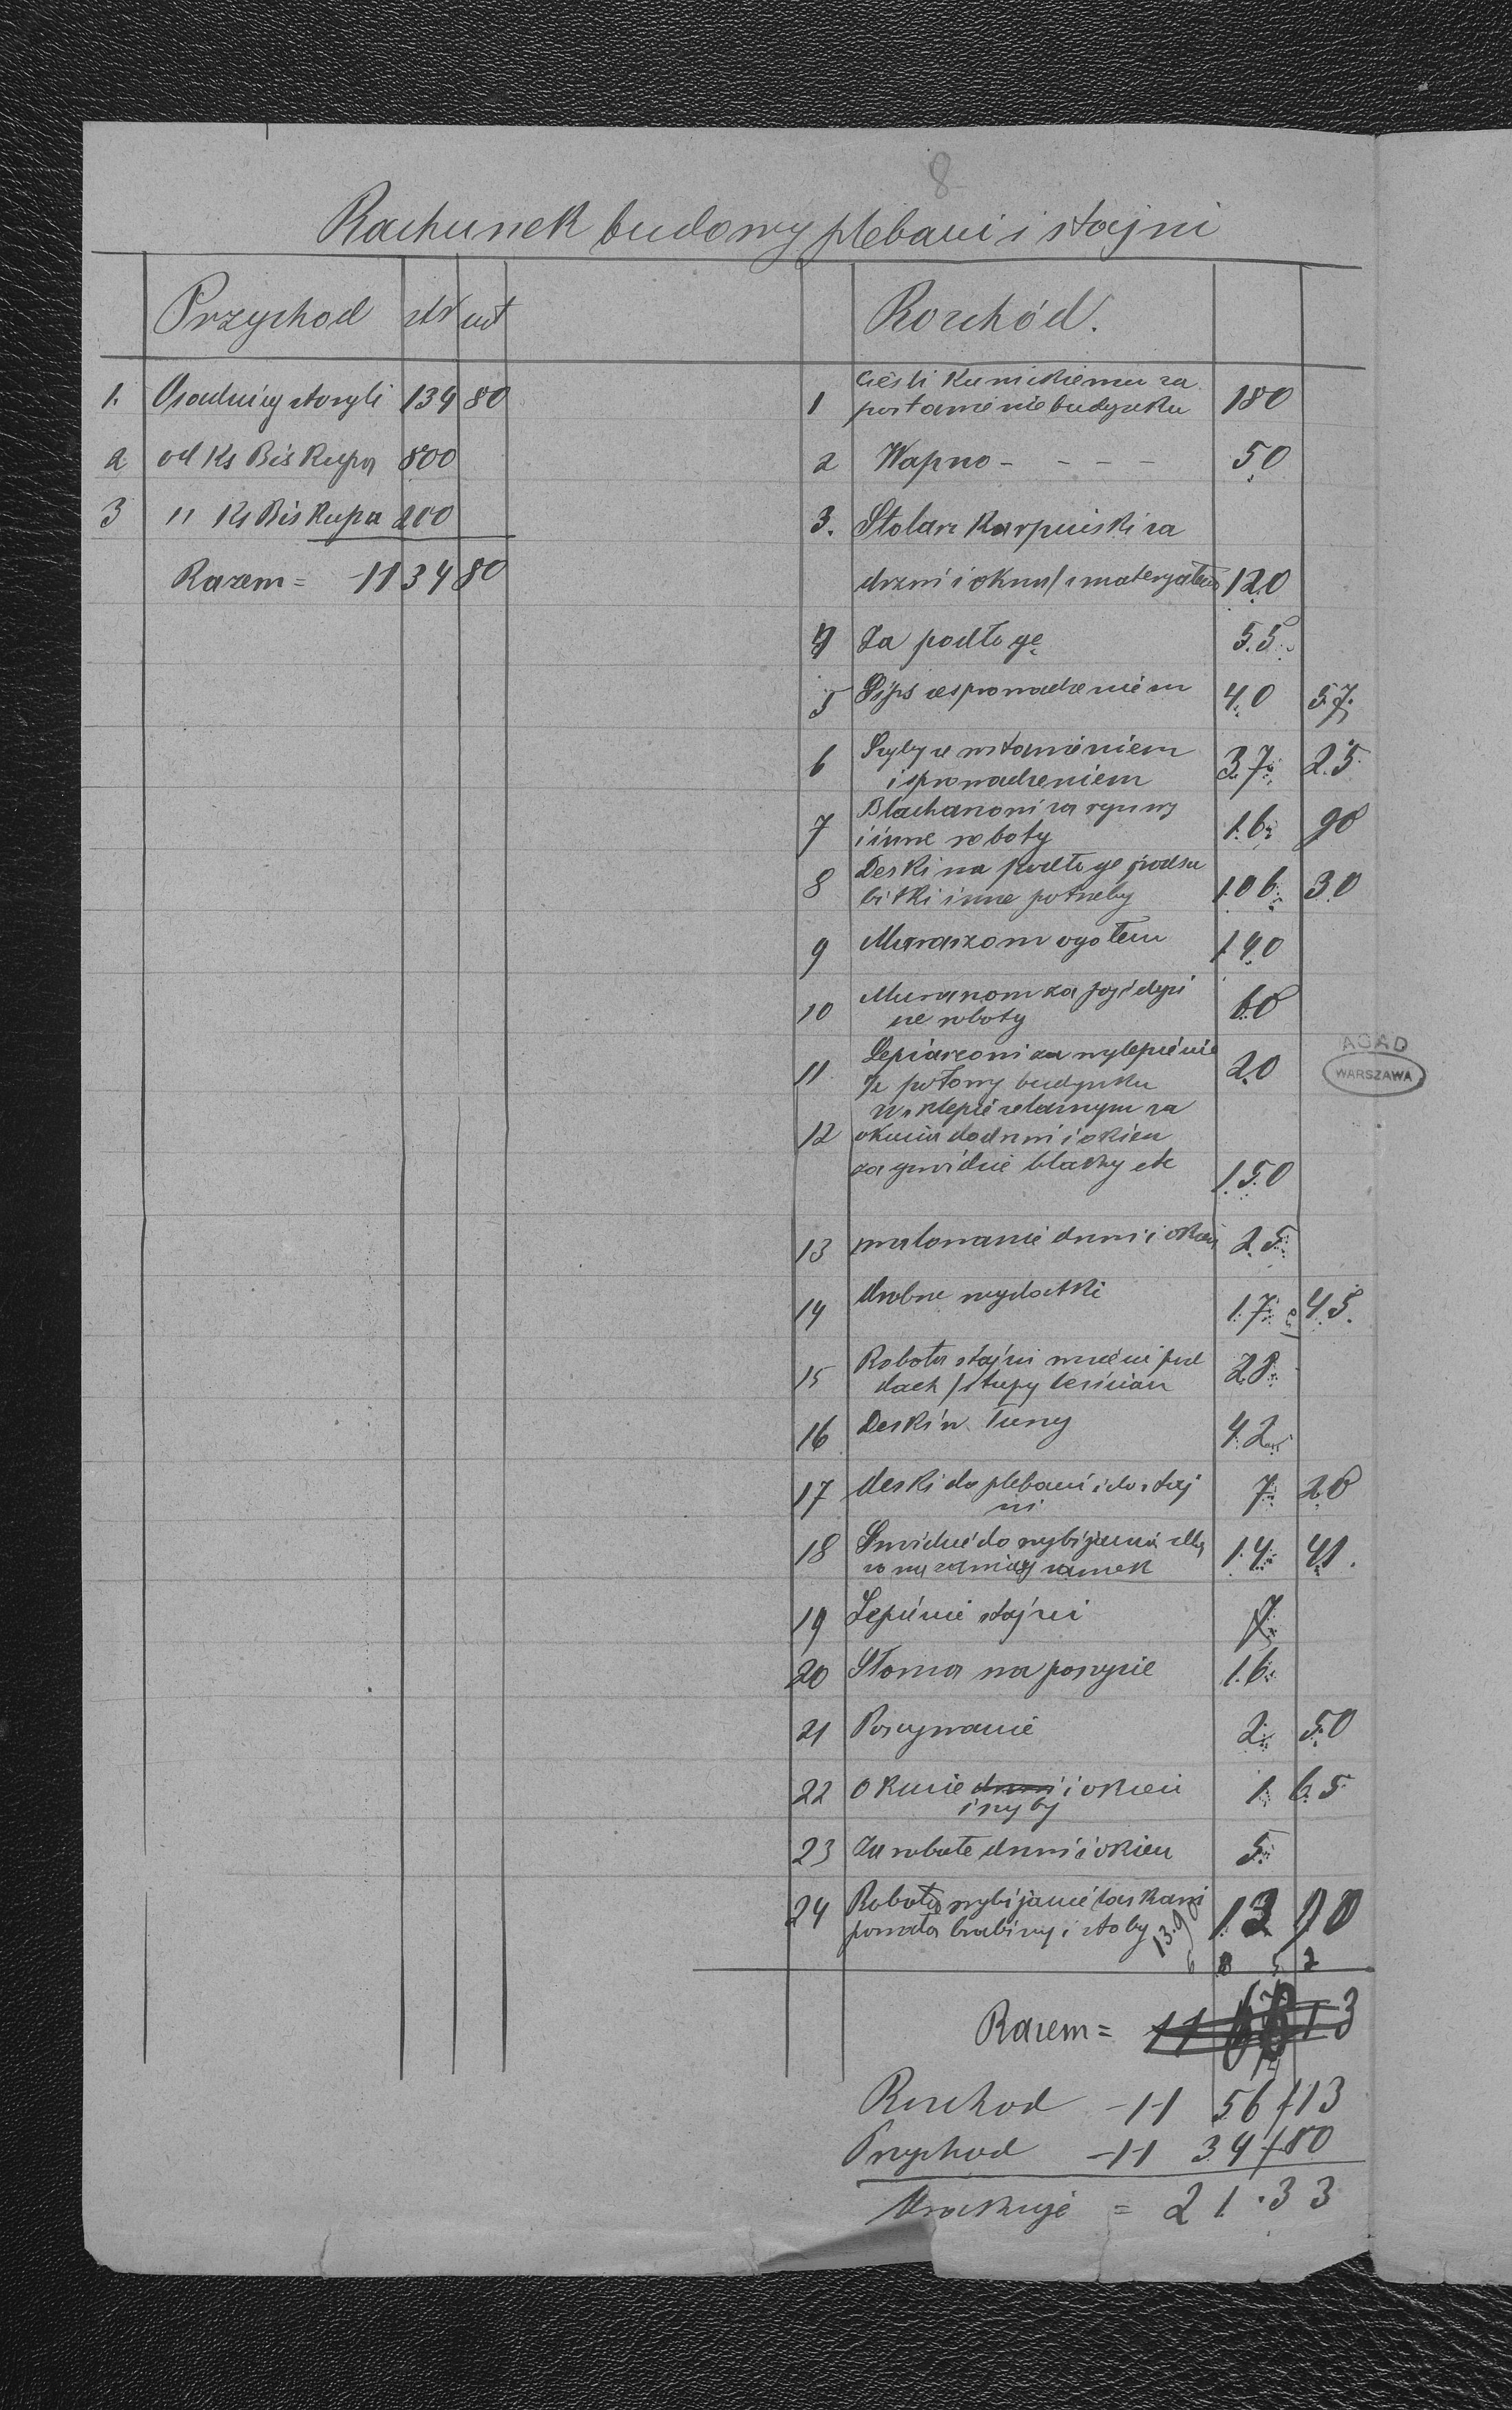 8
Rachunek budowy plebani i stajni
Przychod złr cnt
1. Osadnicy złożyli 134 80
2 od Ks Biskupa 800
3 " Ks Biskupa 200
Razem = 1134 80
Rozchód.
1 Cieśli Kunickiemu za
postawienie budynku 180
2 Wapno - - - - 50
3. Stolarz Karpiński za
drzwi i okna / z materyałem 120
4 Za podłogę 55
5 Gips ze sprowadzeniem 40 57
6 Szyby z wstawieniem
i sprowadzeniem 37 25
7 Blacharzowi za rynwy
i inne roboty 16 90
8 Deski na podłogę podsu
bitki inne potrzeby 106 30
9 Murarzom ogółem 140
10 Murarzom za pojedyń
ne roboty 60
11 Lepiarzowi za wylepienie
1/2 połowy budynku 20
12 W sklepie żelaznym za
okucia do drzwi i okien
za gwoździe blachy etc 150
13 malowanie drzwi i okien 25
14 Drobne wydatki 17 45
15 Robota stajni wzięcie pod
dach / słupy bez ścian 28
16 Deski w Tuny 42
17 Deski do plebani i do staj
ni 7 20
18 Gwoździe do wybijania
zamek 14 41
19 Lepienie stajni 7
20 Słoma na poszycie 16
21 Poszywanie 2 50
22 Okucie drzwi i okien
i szyby 1 65
23 Za robotę drzwi i okien 5
24 Robota wybijanie laskami
powała hrabiny i stoby 13.9 13 90
Razem =
Rozchod 11 56 / 13
Przychod 11 34 / 80
Brakuje = 21.33
AGAD
WARSZAWA